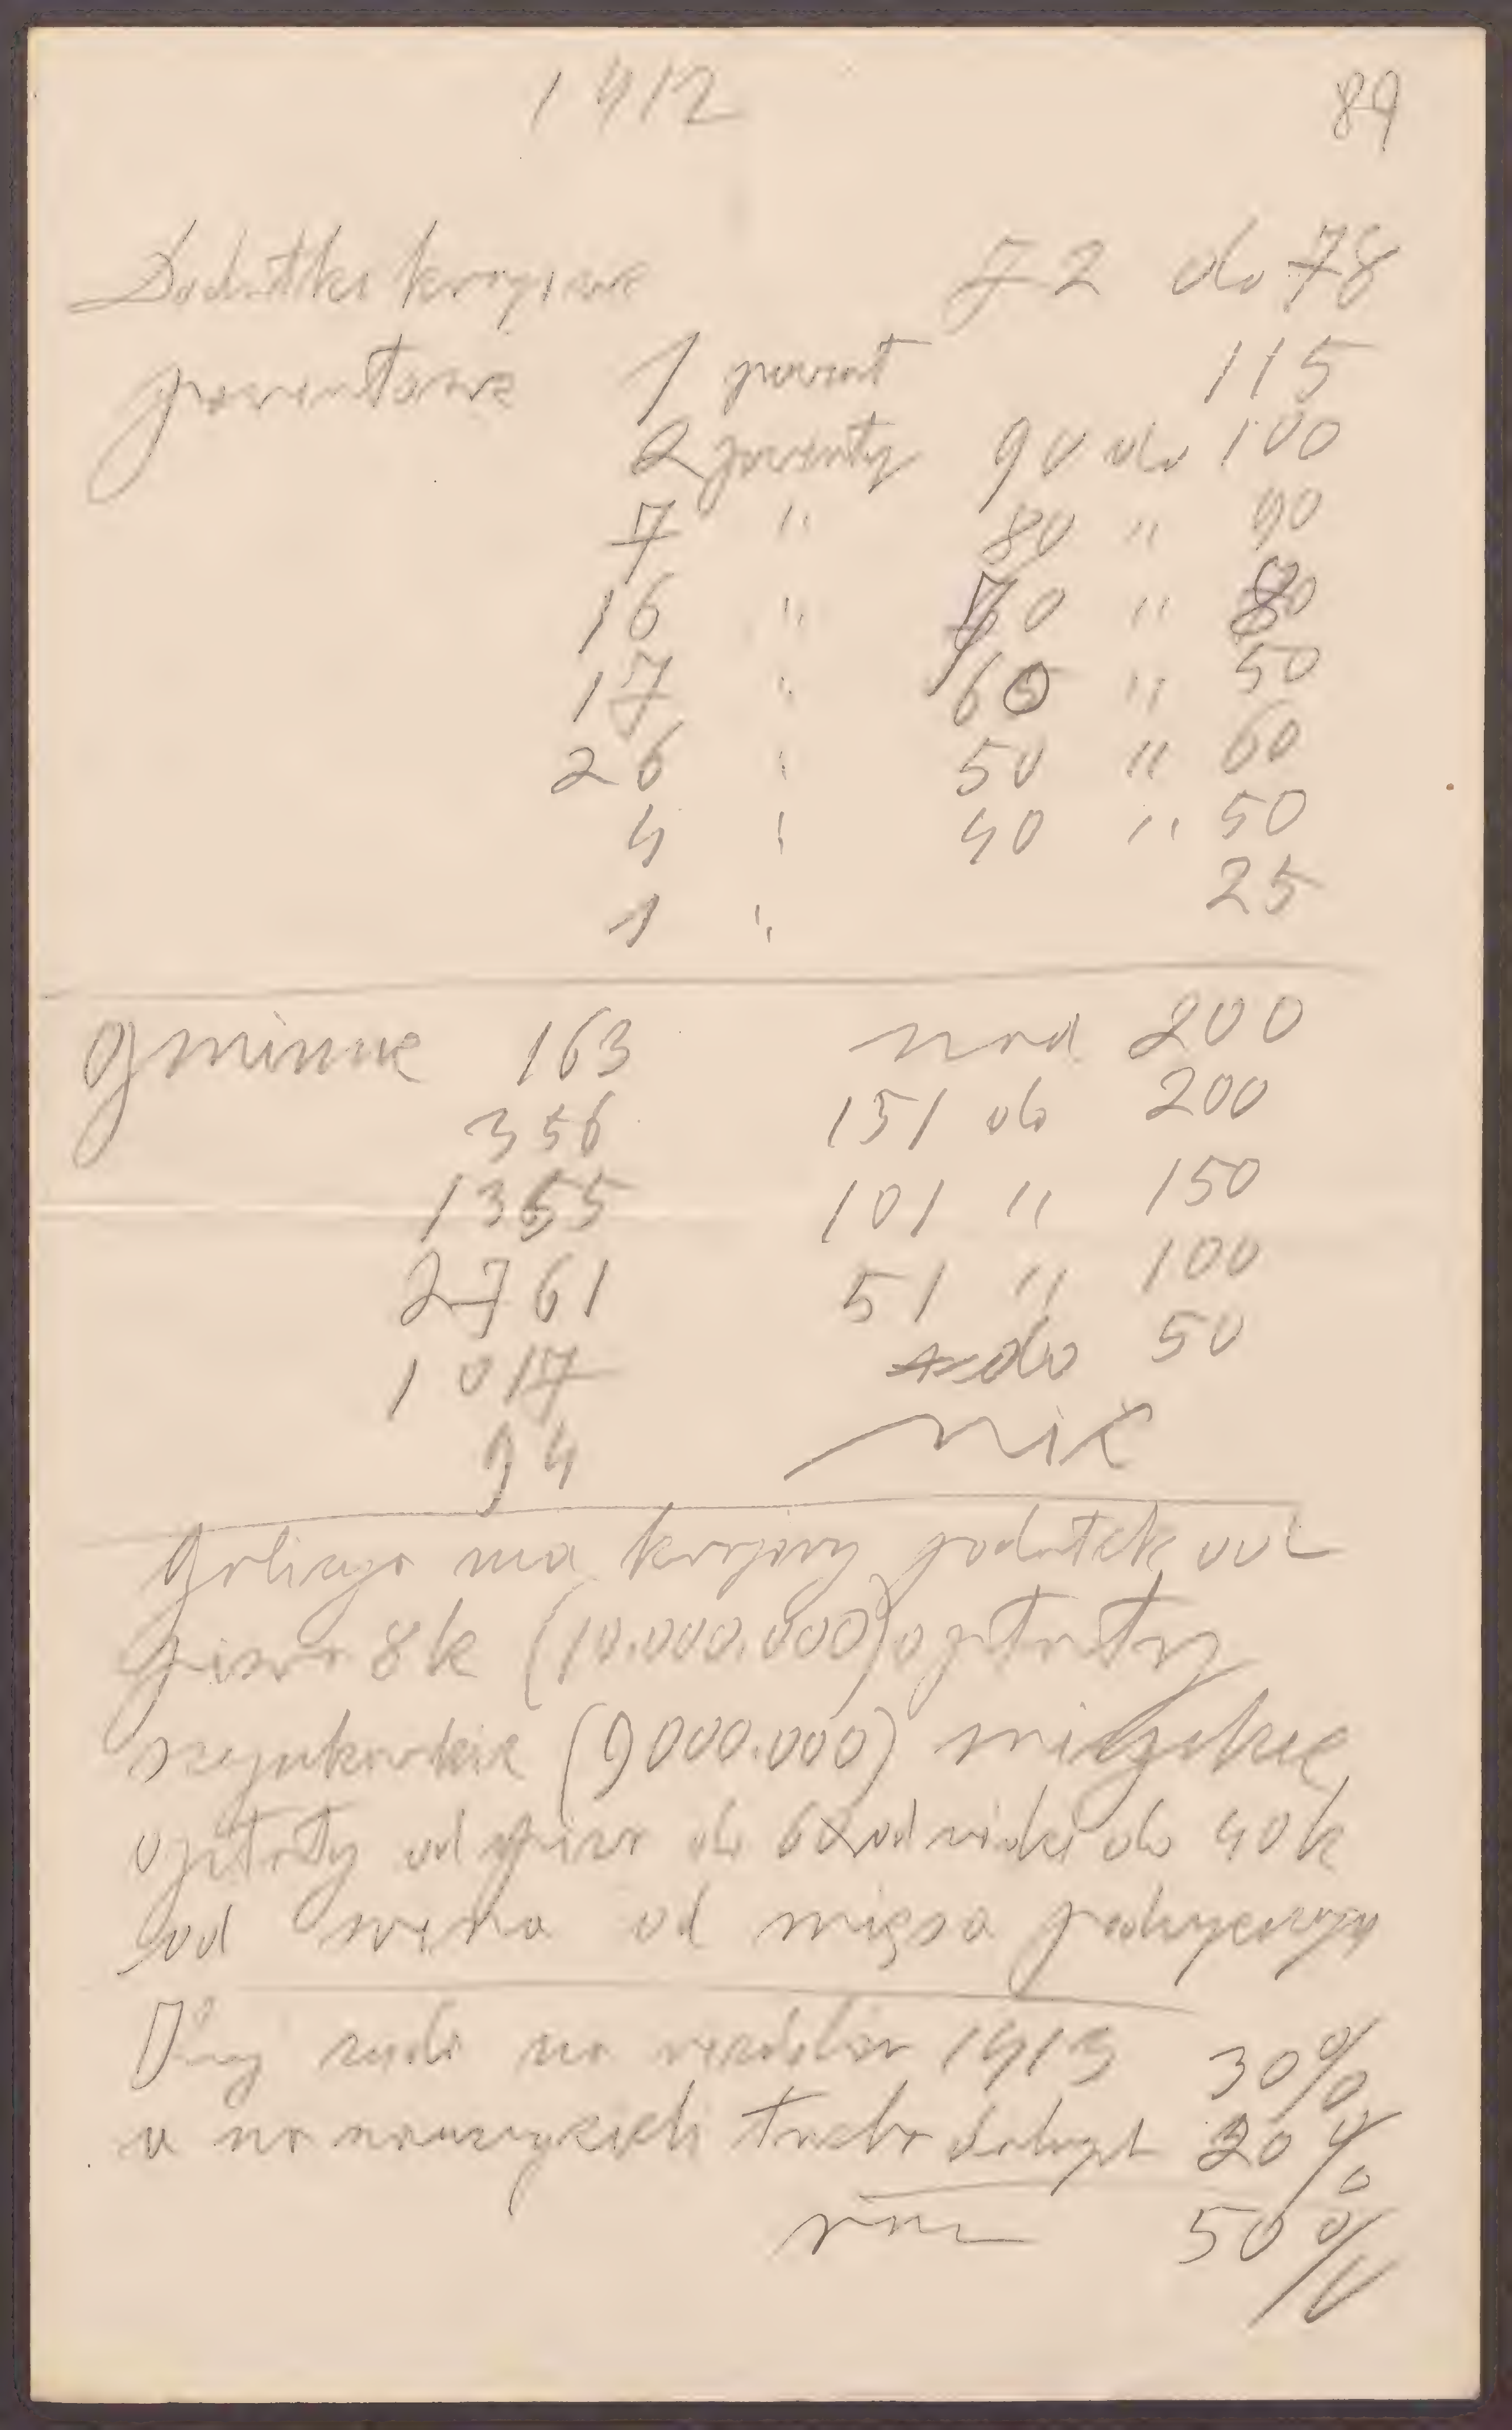 1912 89
Dodatki krajowe 72 do 78
powiatowe 1 powiat 115
2 powiaty 90 do 100
7 " 80 " 90
16 " 70 " 80
17 " 60 " 50
26 " 50 " 60
4 " 40 " 50
1 " 25
gminne 163 nad 200
356 151 do 200
1355 101 " 150
2761 51 " 100
1017 do 50
94 nic
Galicya ma krajowy podatek od
piwa 8k (10.000.000) opłaty
szynkarskie (9000.000) miejskie
opłaty od piwa do 6k od wódki do 40k
od wina od mięsa
1913 30%
a na trzeba 20%
50%